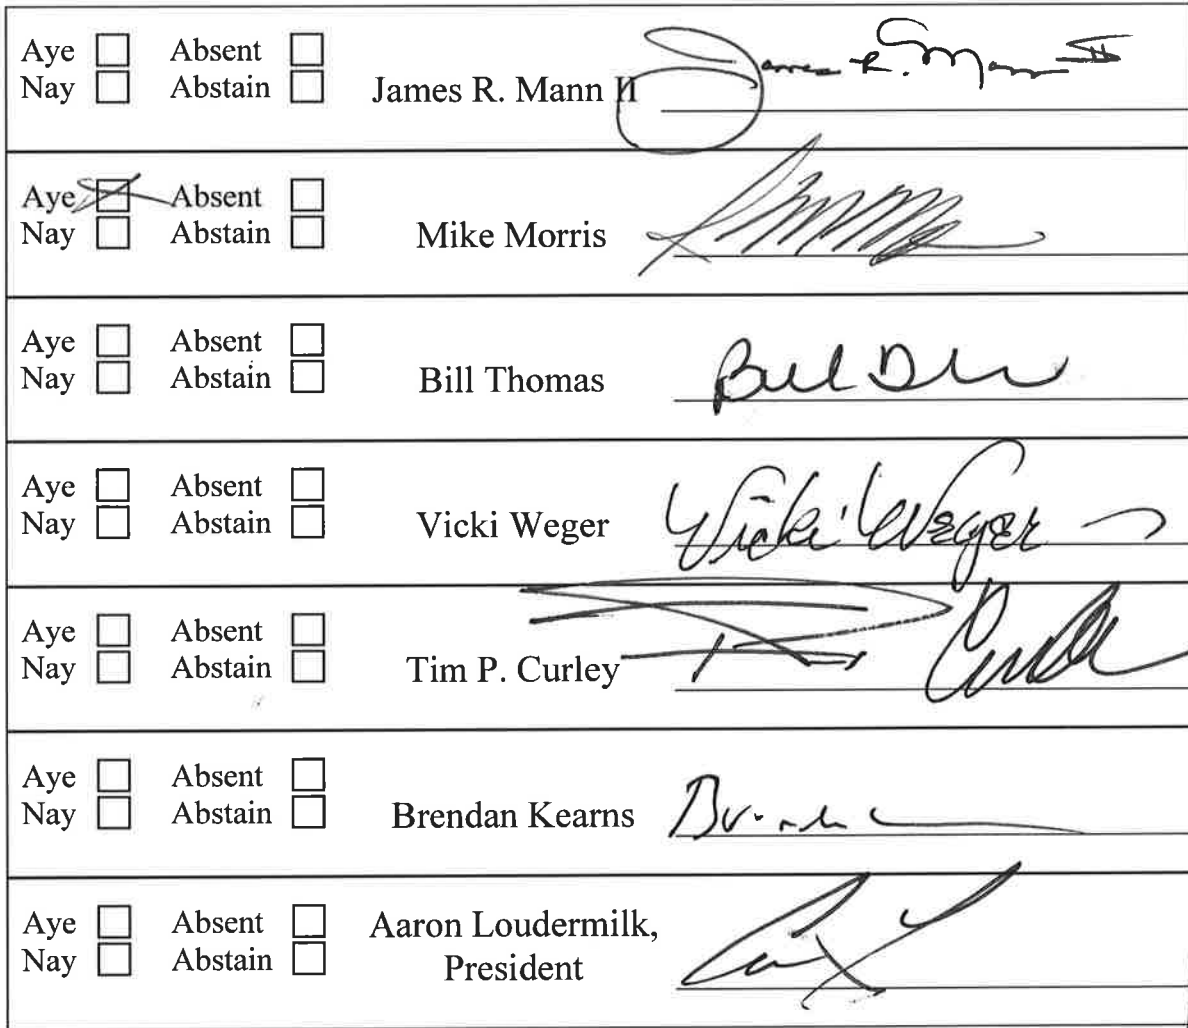 Aye ☐ Absent ☐
Nay ☐ Abstain ☐ James R. Mann II James R. Mann II
Aye ☒ Absent ☐
Nay ☐ Abstain ☐ Mike Morris
Aye ☐ Absent ☐
Nay ☐ Abstain ☐ Bill Thomas Bill
Aye ☐ Absent ☐
Nay ☐ Abstain ☐ Vicki Weger Vicki Weger
Aye ☐ Absent ☐
Nay ☐ Abstain ☐ Tim P. Curley
Aye ☐ Absent ☐
Nay ☐ Abstain ☐ Brendan Kearns
Aye ☐ Absent ☐ Aaron Loudermilk,
Nay ☐ Abstain ☐ President